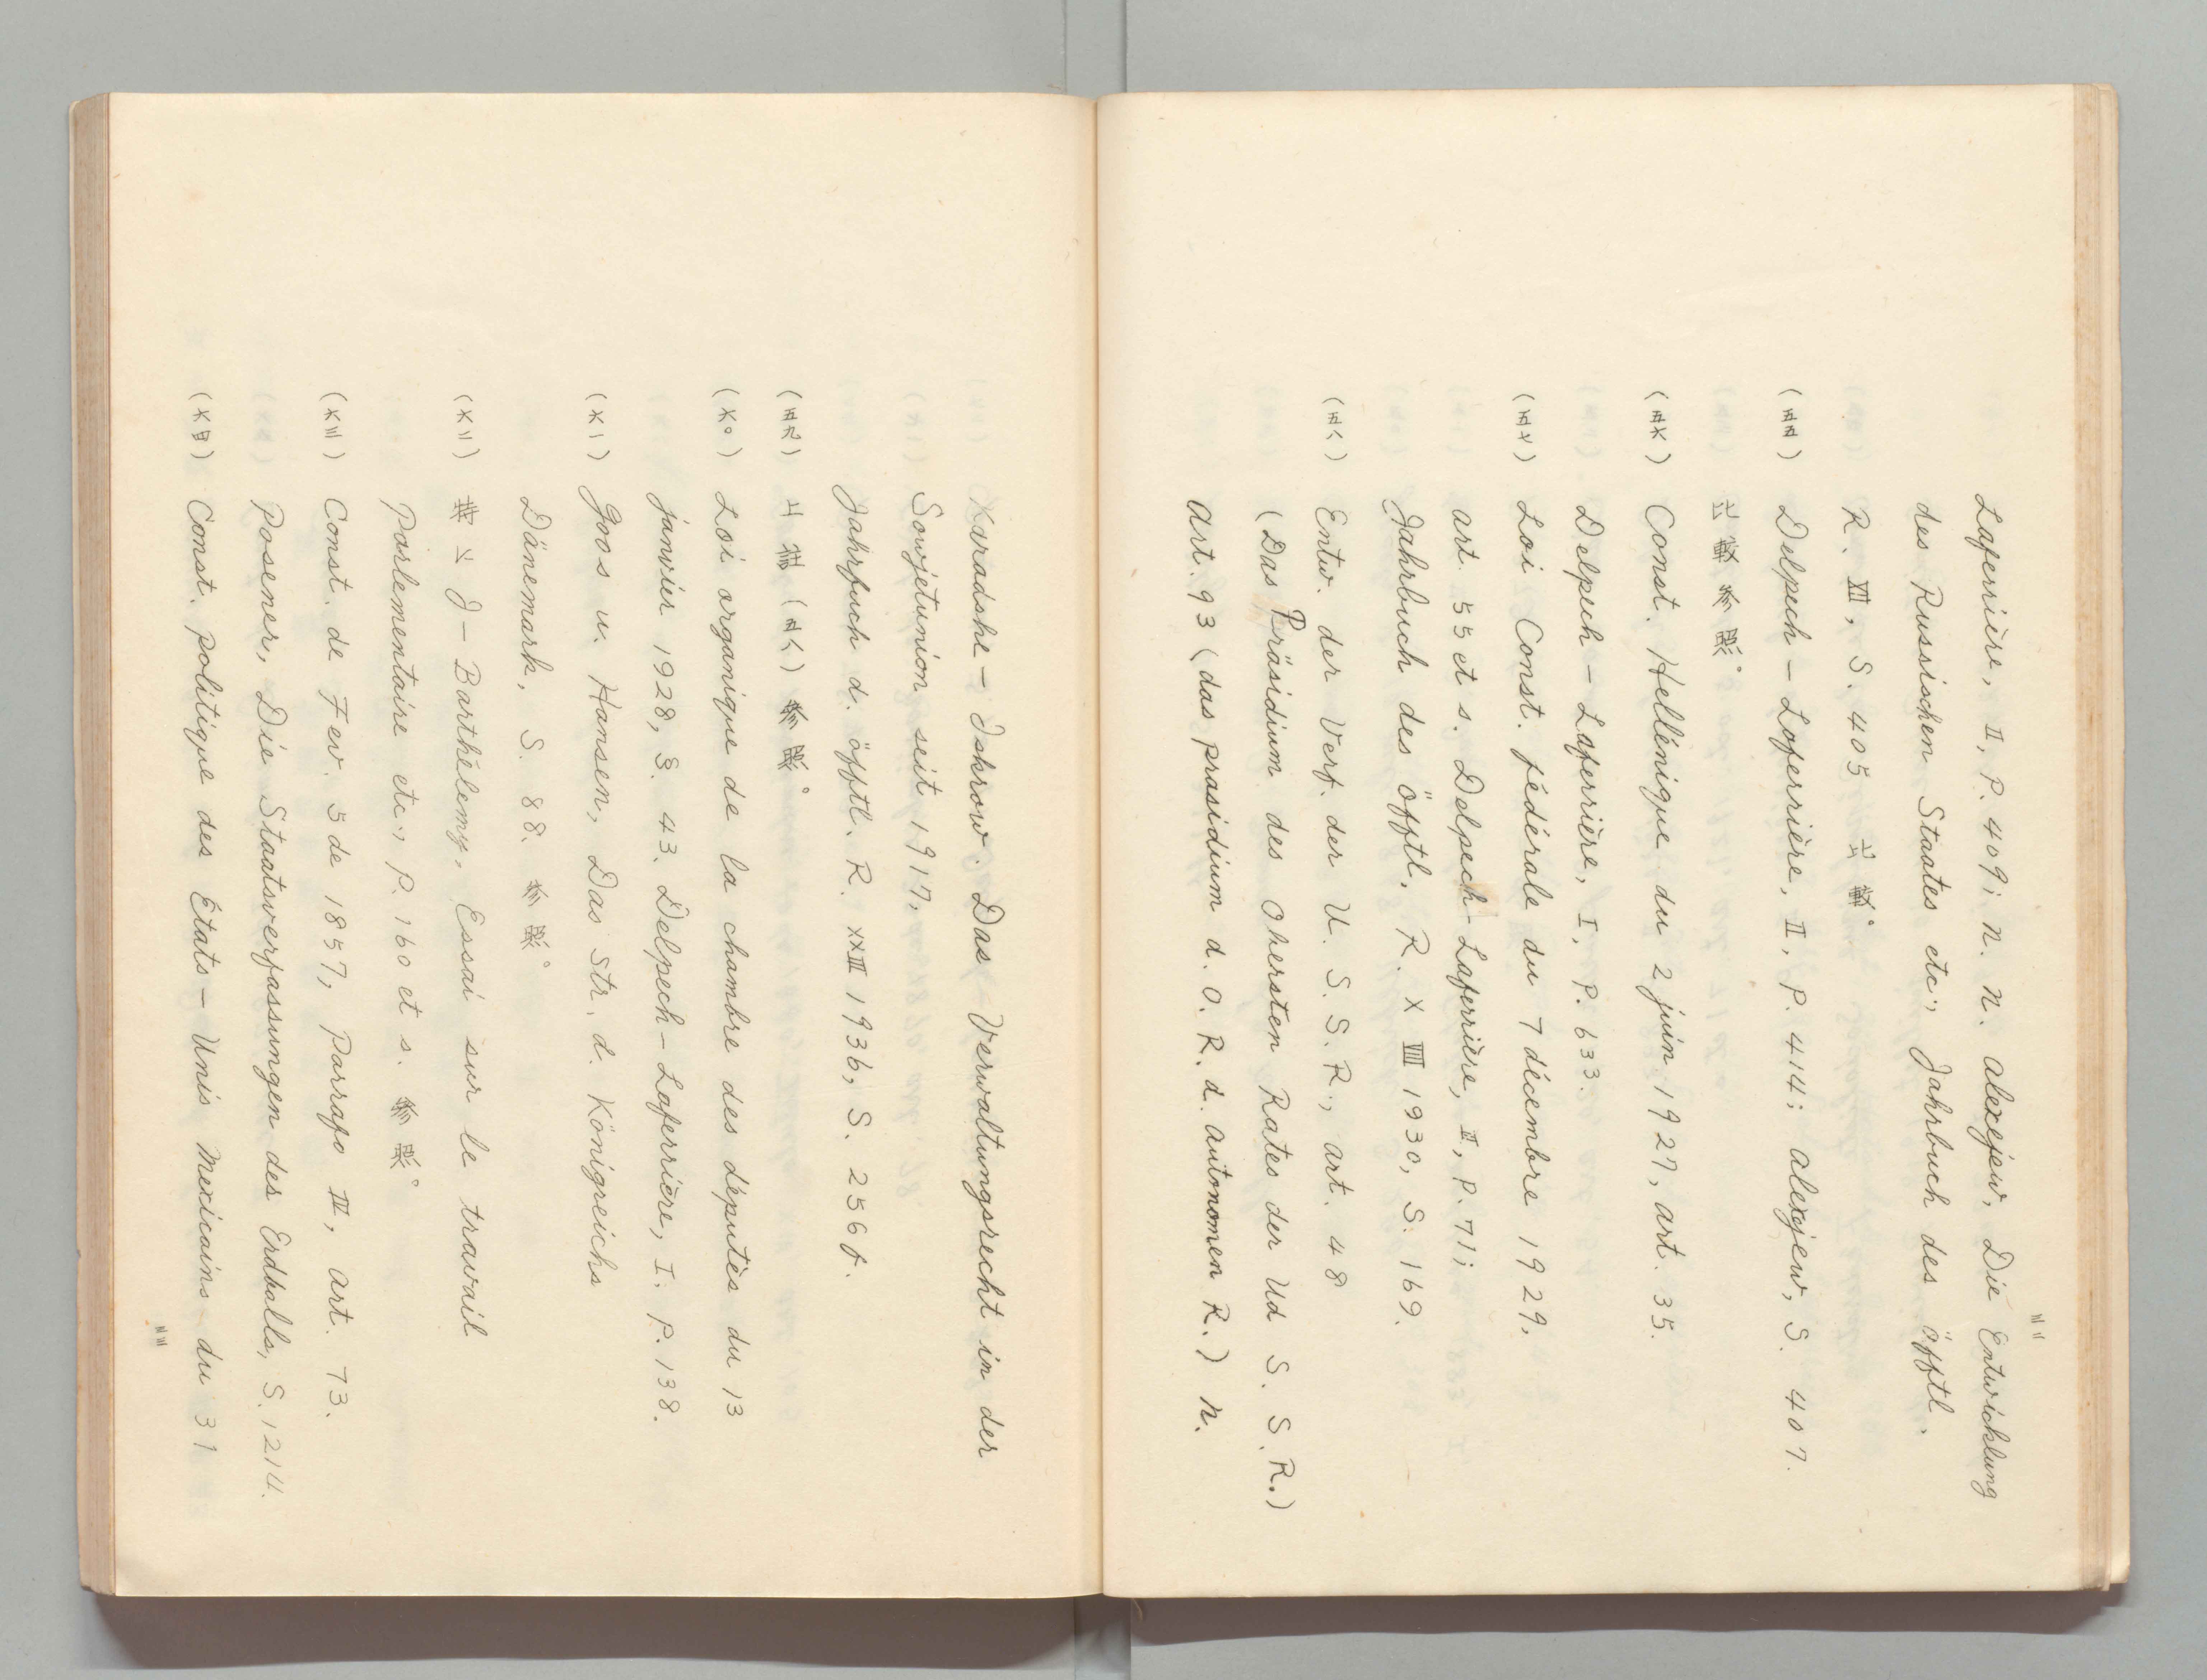 Laferrière, II, P. 409; N. N. Alexejew, Die Entwicklung
des Russischen Staates etc., Jahrbuch des öfftl.
R. XII, S. 405 比較。
(五五) Delpech-Laferrière, II, P. 414; Alexejew, S. 407.
比較参照。
(五六) Const. Hellénique du 2 juin 1927, art. 35.
Delpech-Laferrière, I, P. 633.
(五七) Loi Const. fédérale du 7 décembre 1929,
art. 55 et s. Delpech-Laferrière, II, P. 71;
Jahrbuch des Öfftl. R. X VIII 1930, S. 169.
(五八) Entw. der Verf. der U. S. S. R., art. 48
(Das Präsidium des Obersten Rates der Ud S. S. R.)
Art. 93 (das prasidium d. O. R. d. autonomen R.) N.
四二
Karadshe-Iskrow. Das Verwaltungsrecht in der
Sowjetunion seit 1917.
Jahrfuch d. öfftl. R. XXIII 1936, S. 256 f.
(五九) 上掲(五八)参照。
(六〇) Loi organique de la chambre des députès du 13
janvier 1928, S. 43. Delpech-Laferrière, I. P. 138.
(六一) Goos u. Hansen, Das Str. d. Königreichs
Dänemark, S. 88. 参照。
(六二) J-Barthélemy, Essai sur le travail
Parlementaire etc., P. 160 et s. 参照。
(六三) Const. de Fev. 5 de 1857, Parrafo IV, art. 73.
Posener, Die Staatsverfassungen des Erdballs, S. 1214.
(六四) Const. politique des États-Unis Mexicains du 31
四三